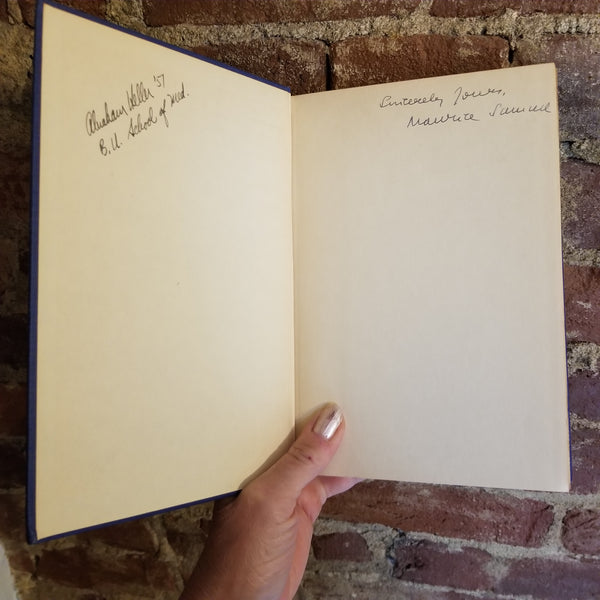 Abraham Heller '51
B.U. School of Med.
Sincerely Yours,
Maurice Samuel